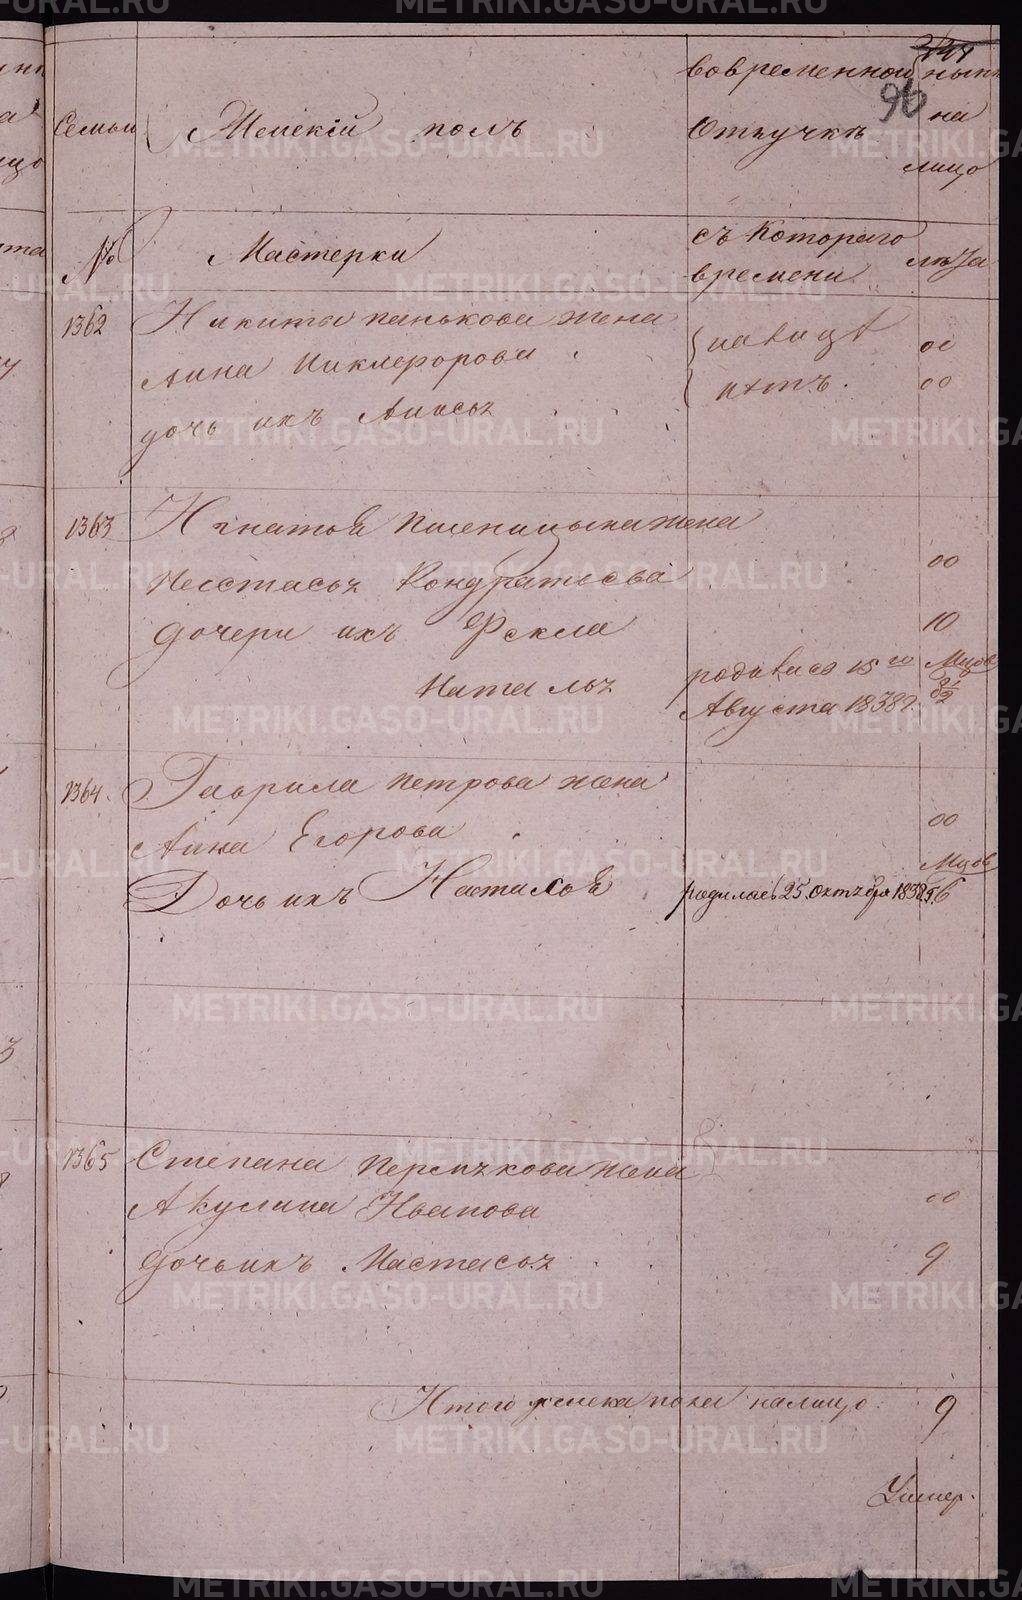 METRIKI.GASO-URAL.RU
96
Семьи
Женскій полъ
во временной
отлучкѣ
ныни
на
лицо
№
Мастерки
съ котораго
времени
лѣта
1362
Никиты панькова жена
Анна Никифорова
дочь ихъ
на лицѣ
нѣтъ.
00
00
1363
Игнатья Пшеницына жена
Настасья Кондратьева
00
дочери ихъ Фекла
10
Наталья
родилась 15го
Августа 1838г.
Мцов
8 1/2
1364
Гаврила петрова жена
Анна Егорова
00
Дочь ихъ Настасья
родилась 25 октября 1838г.
Мцов
6
1365
Степана жена
Акулина Иванова
00
дочь ихъ Настасья
9
Итого женска пола налицо
9
Умер.